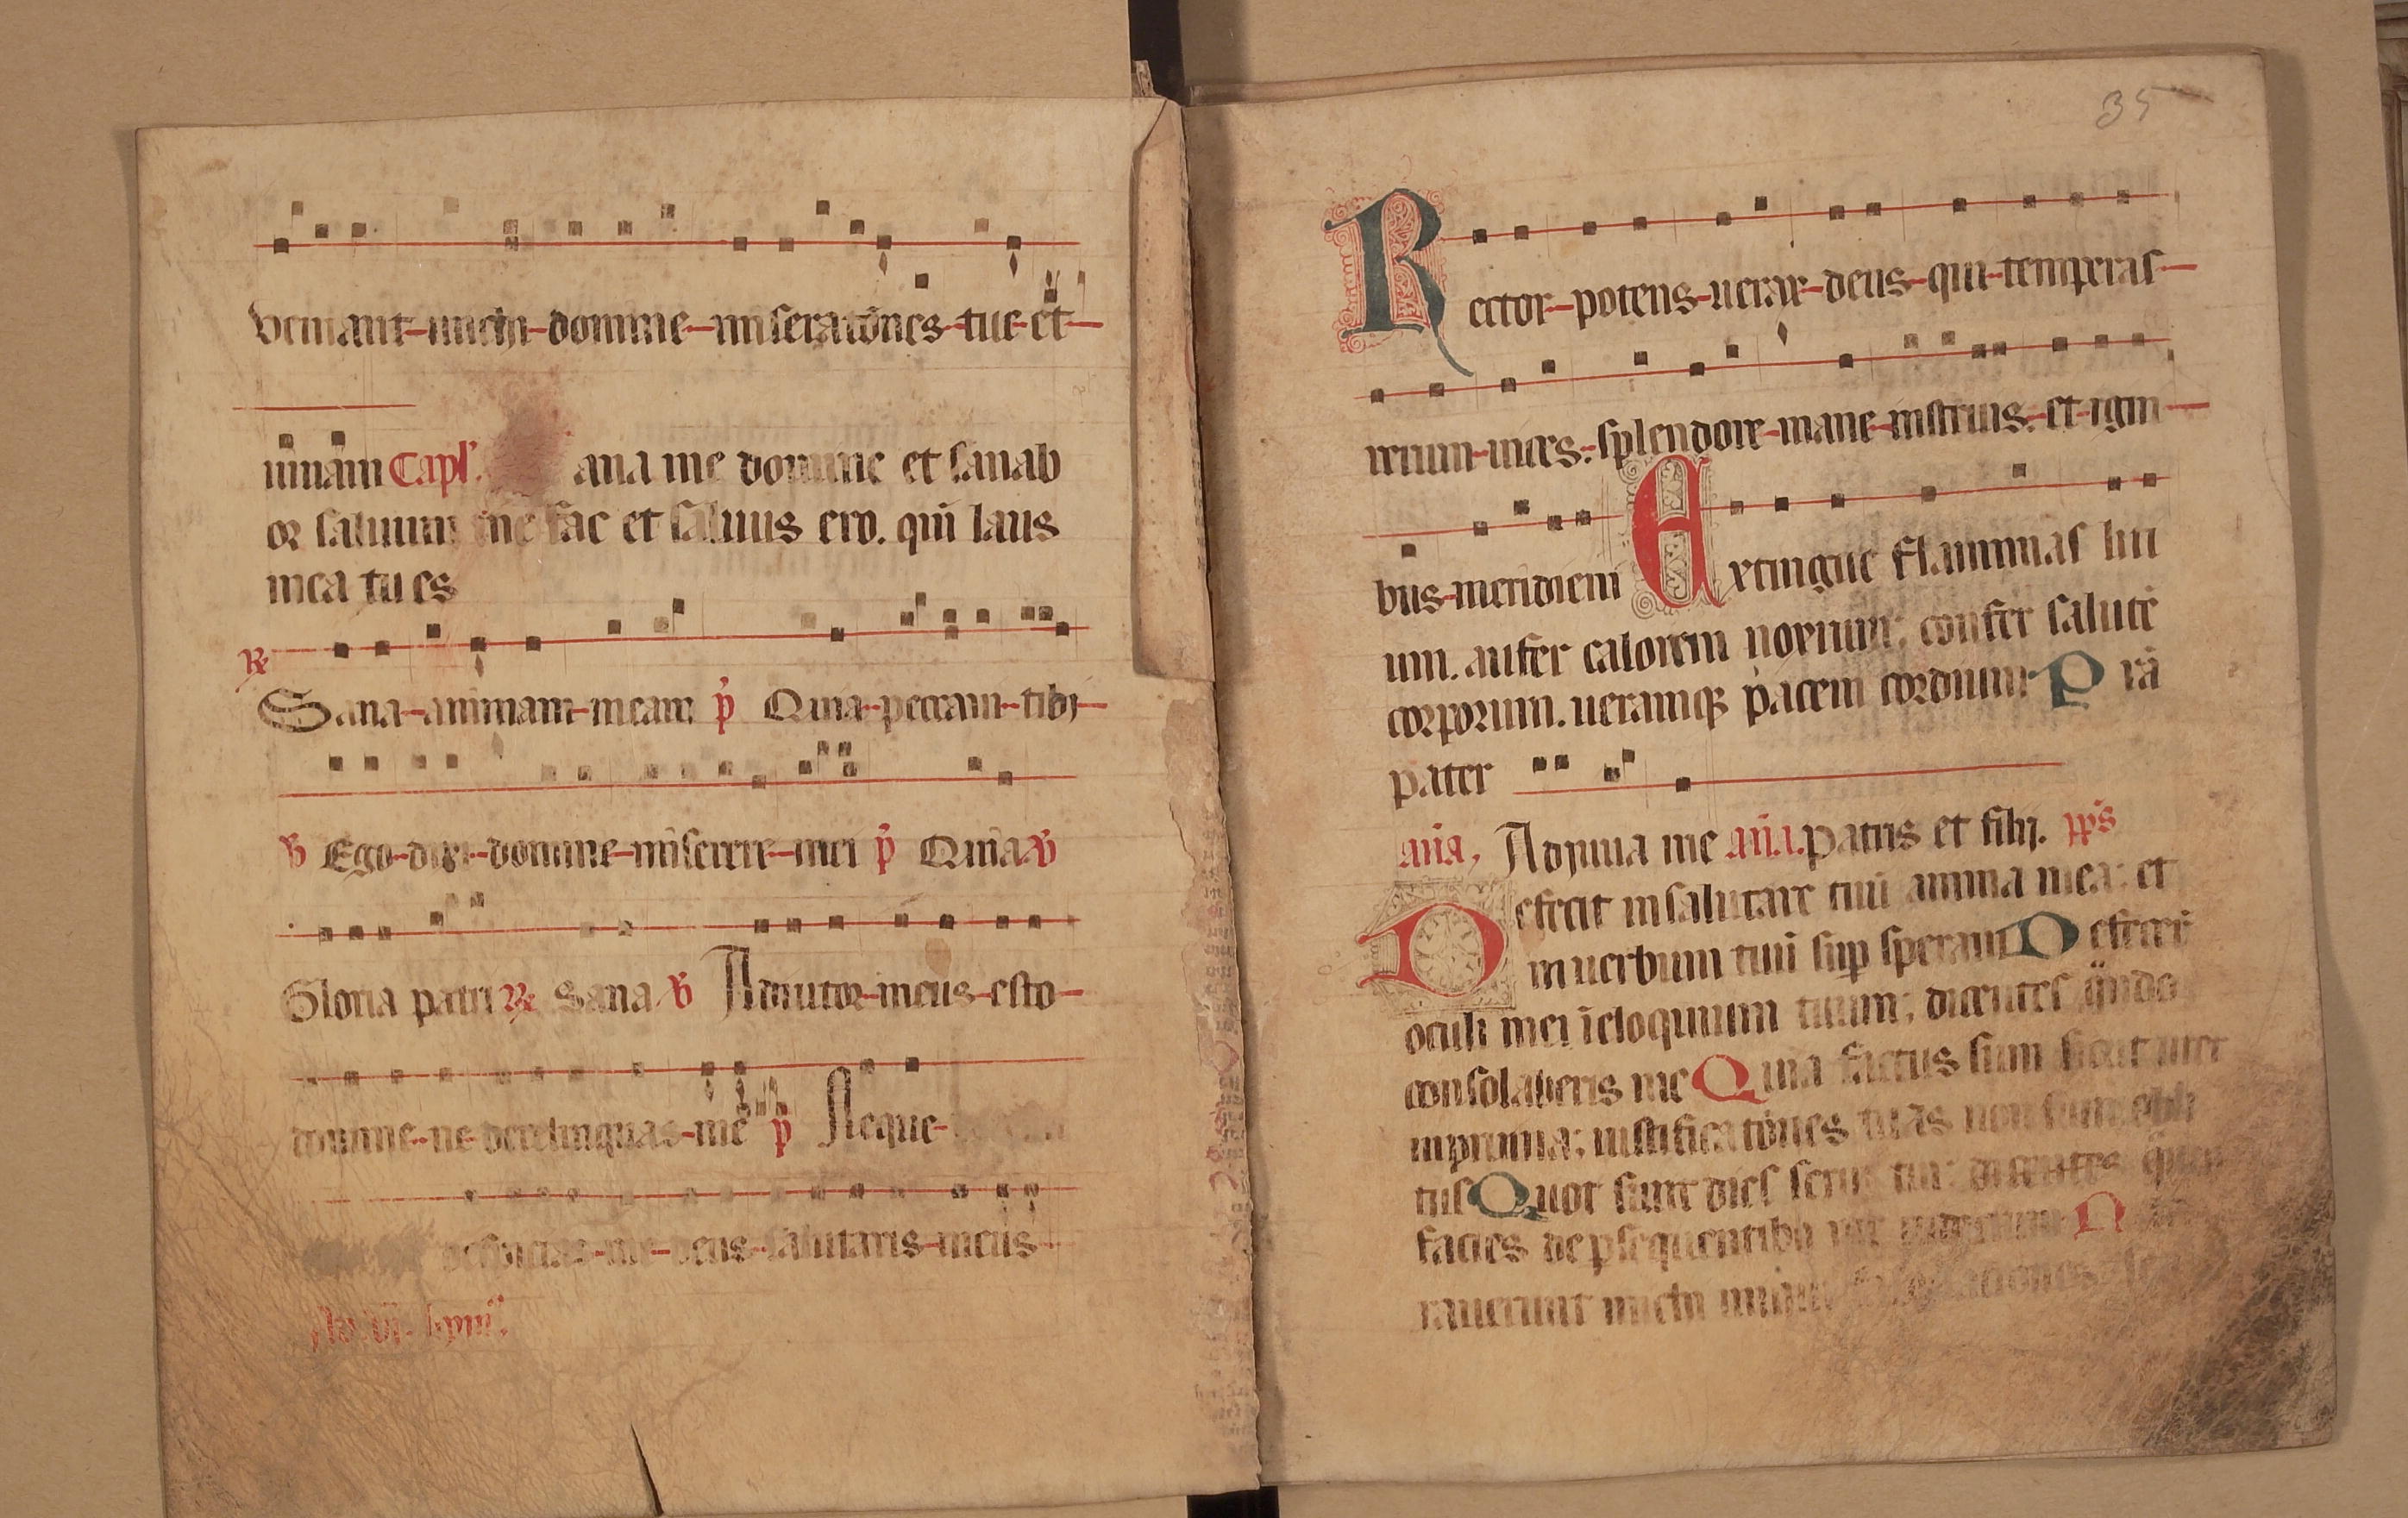 veniant michi domine miseratōnes tue et
uiuam Capl'. ana me domine et sanab
or saluum me fac et saluus ero. qm̄ laus
mea tu es
R
Sana animam meam p̄ Quia peccaui tibi
V Ego dixi domine miserere mei p̄ Quia V
Gloria patri R Sana V Adiutor meus esto
domine ne derelinquas me p̄ Neque
despicias me deus salutaris meus
Ad vi.
35
Rector potens uerax deus qui temperas
rerum uices. splendore mane instruis. et igni
bus meridiem Extingue flammas liti
um. aufer calorem noxium; confer salutē
corporum. ueramq; pacem cordium P rā
pater
an̄a, Adiuua me an̄a. Patris et filij. ps̄
Defecit in salutare tuū anima mea: et
in uerbum tuū sup speraui Defecer̄
oculi mei ī eloquium tuum; dicentes q̄ndo
consolaberis me Quia factus sum sicut uter
in pruina: iustificatōnes tuas non sum obli
tus Quot sunt dies serui tui: dicentes
facies de psequentibꝯ me iudicium N
rauerunt michi iniqui fabulationes: